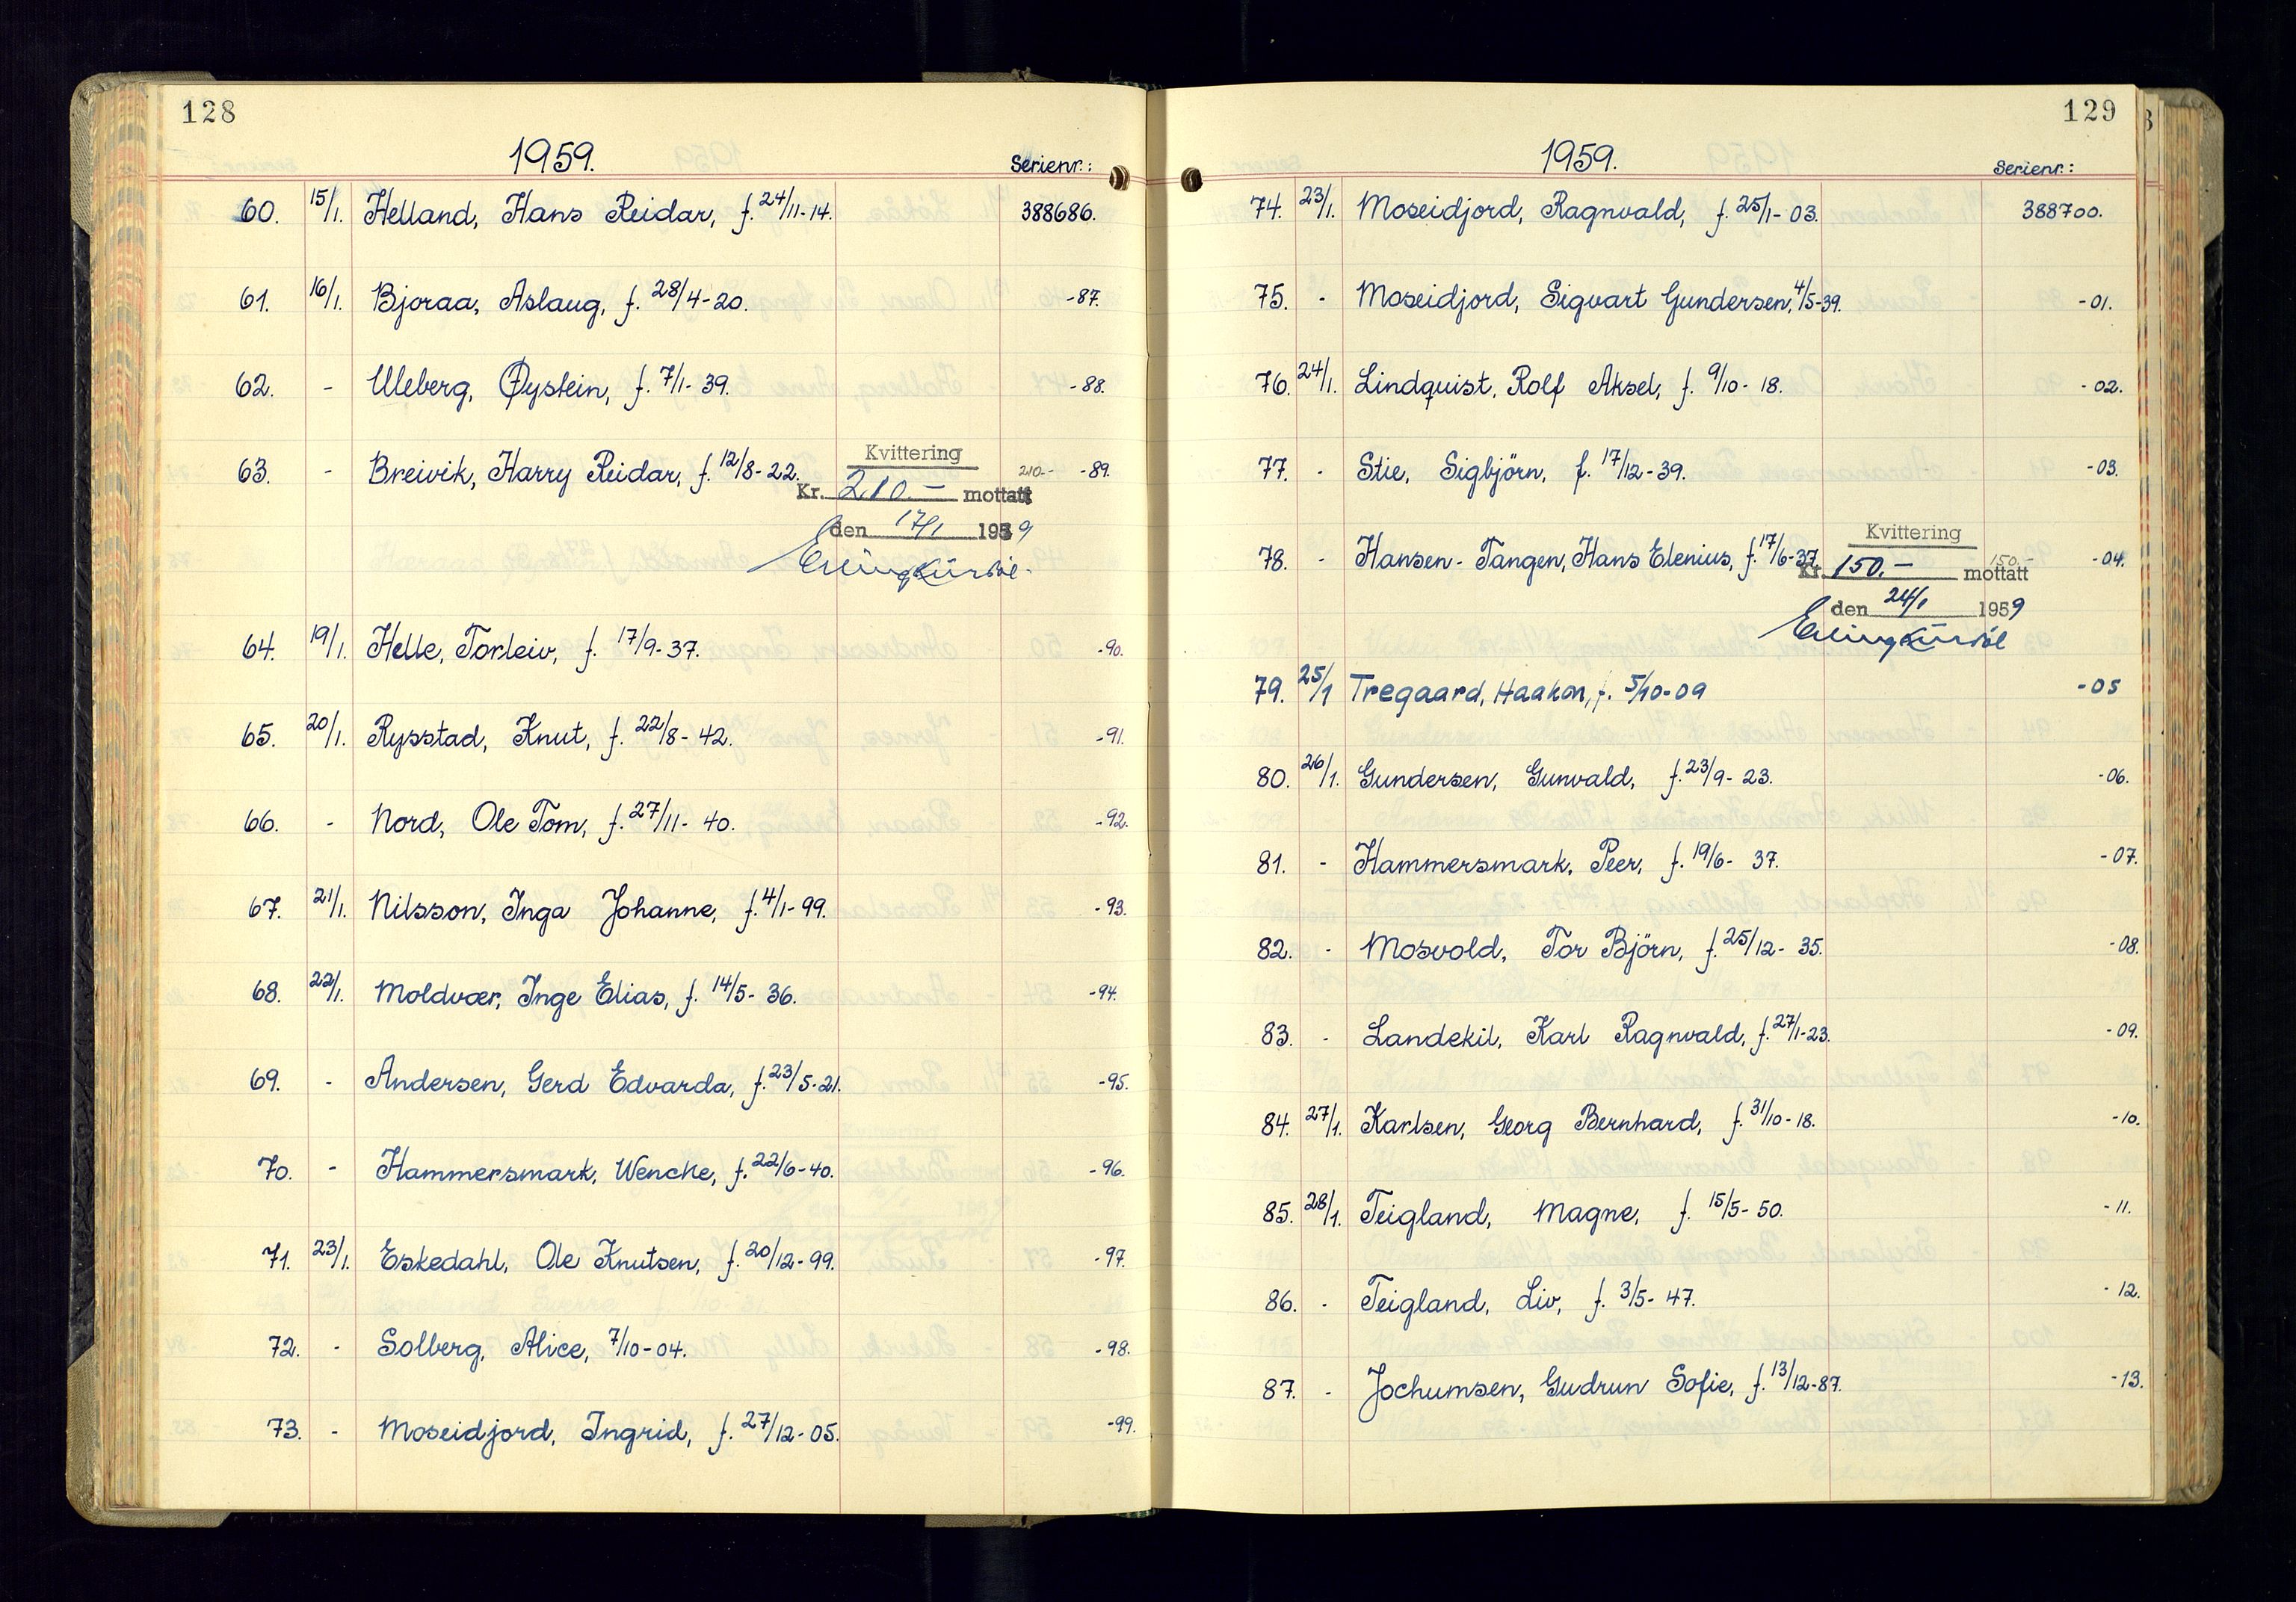 128
1959.
Serienr.:
60. 15/1. Helland, Hans Reidar, f. 24/11-14. 388686.
61. 16/1. Bjoraa, Aslaug, f. 28/4-20. -87.
62. - Uleberg, Øystein, f. 7/1-39. -88.
63. - Breivik, Harry Reidar, f. 12/8-22. 210.- -89.
Kvittering
Kr. 210.- mottatt
den 17/1 1959
64. 19/1. Helle, Torleiv, f. 17/9-37. -90.
65. 20/1. Rysstad, Knut, f. 22/8-42. -91.
66. - Nord, Ole Tom, f. 27/11-40. -92.
67. 21/1. Nilsson, Inga Johanne, f. 4/1-99. -93.
68. 22/1. Moldvær, Inge Elias, f. 14/5-36. -94.
69. - Andersen, Gerd Edvarda, f. 23/5-21. -95.
70. - Hammersmark, Wencke, f. 22/6-40. -96.
71. 23/1. Eskedahl, Ole Knutsen, f. 20/12-99. -97.
72. - Solberg, Alice, 7/10-04. -98.
73. - Moseidjord, Ingrid, f. 27/12-05. -99.
129
1959.
Serienr.:
74. 23/1. Moseidjord, Ragnvald, f. 25/1-03. 388700.
75. - Moseidjord, Sigvart Gundersen, 4/5-39. -01.
76. 24/1. Lindquist, Rolf Aksel, f. 9/10-18. -02.
77. - Stie, Sigbjörn, f. 17/12-39. -03.
78. - Hansen-Tangen, Hans Elenius, f. 17/6-37. 150.- -04.
Kvittering
Kr. 150.- mottatt
den 24/1 1959
79. 25/1 Tregaard, Haakon, f. 5/10-09 -05
80. 26/1. Gundersen, Gunvald, f. 23/9-23. -06.
81. - Hammersmark, Peer, f. 19/6-37. -07.
82. - Mosvold, Tor Björn, f. 25/12-35. -08.
83. - Landekil, Karl Ragnvald, f. 27/1-23. -09.
84. 27/1. Karlsen, Georg Bernhard, f. 31/10-18. -10.
85. 28/1. Teigland, Magne, f. 15/5-50. -11.
86. - Teigland, Liv, f. 3/5-47. -12.
87. - Jochumsen, Gudrun Sofie, f. 13/12-87. -13.